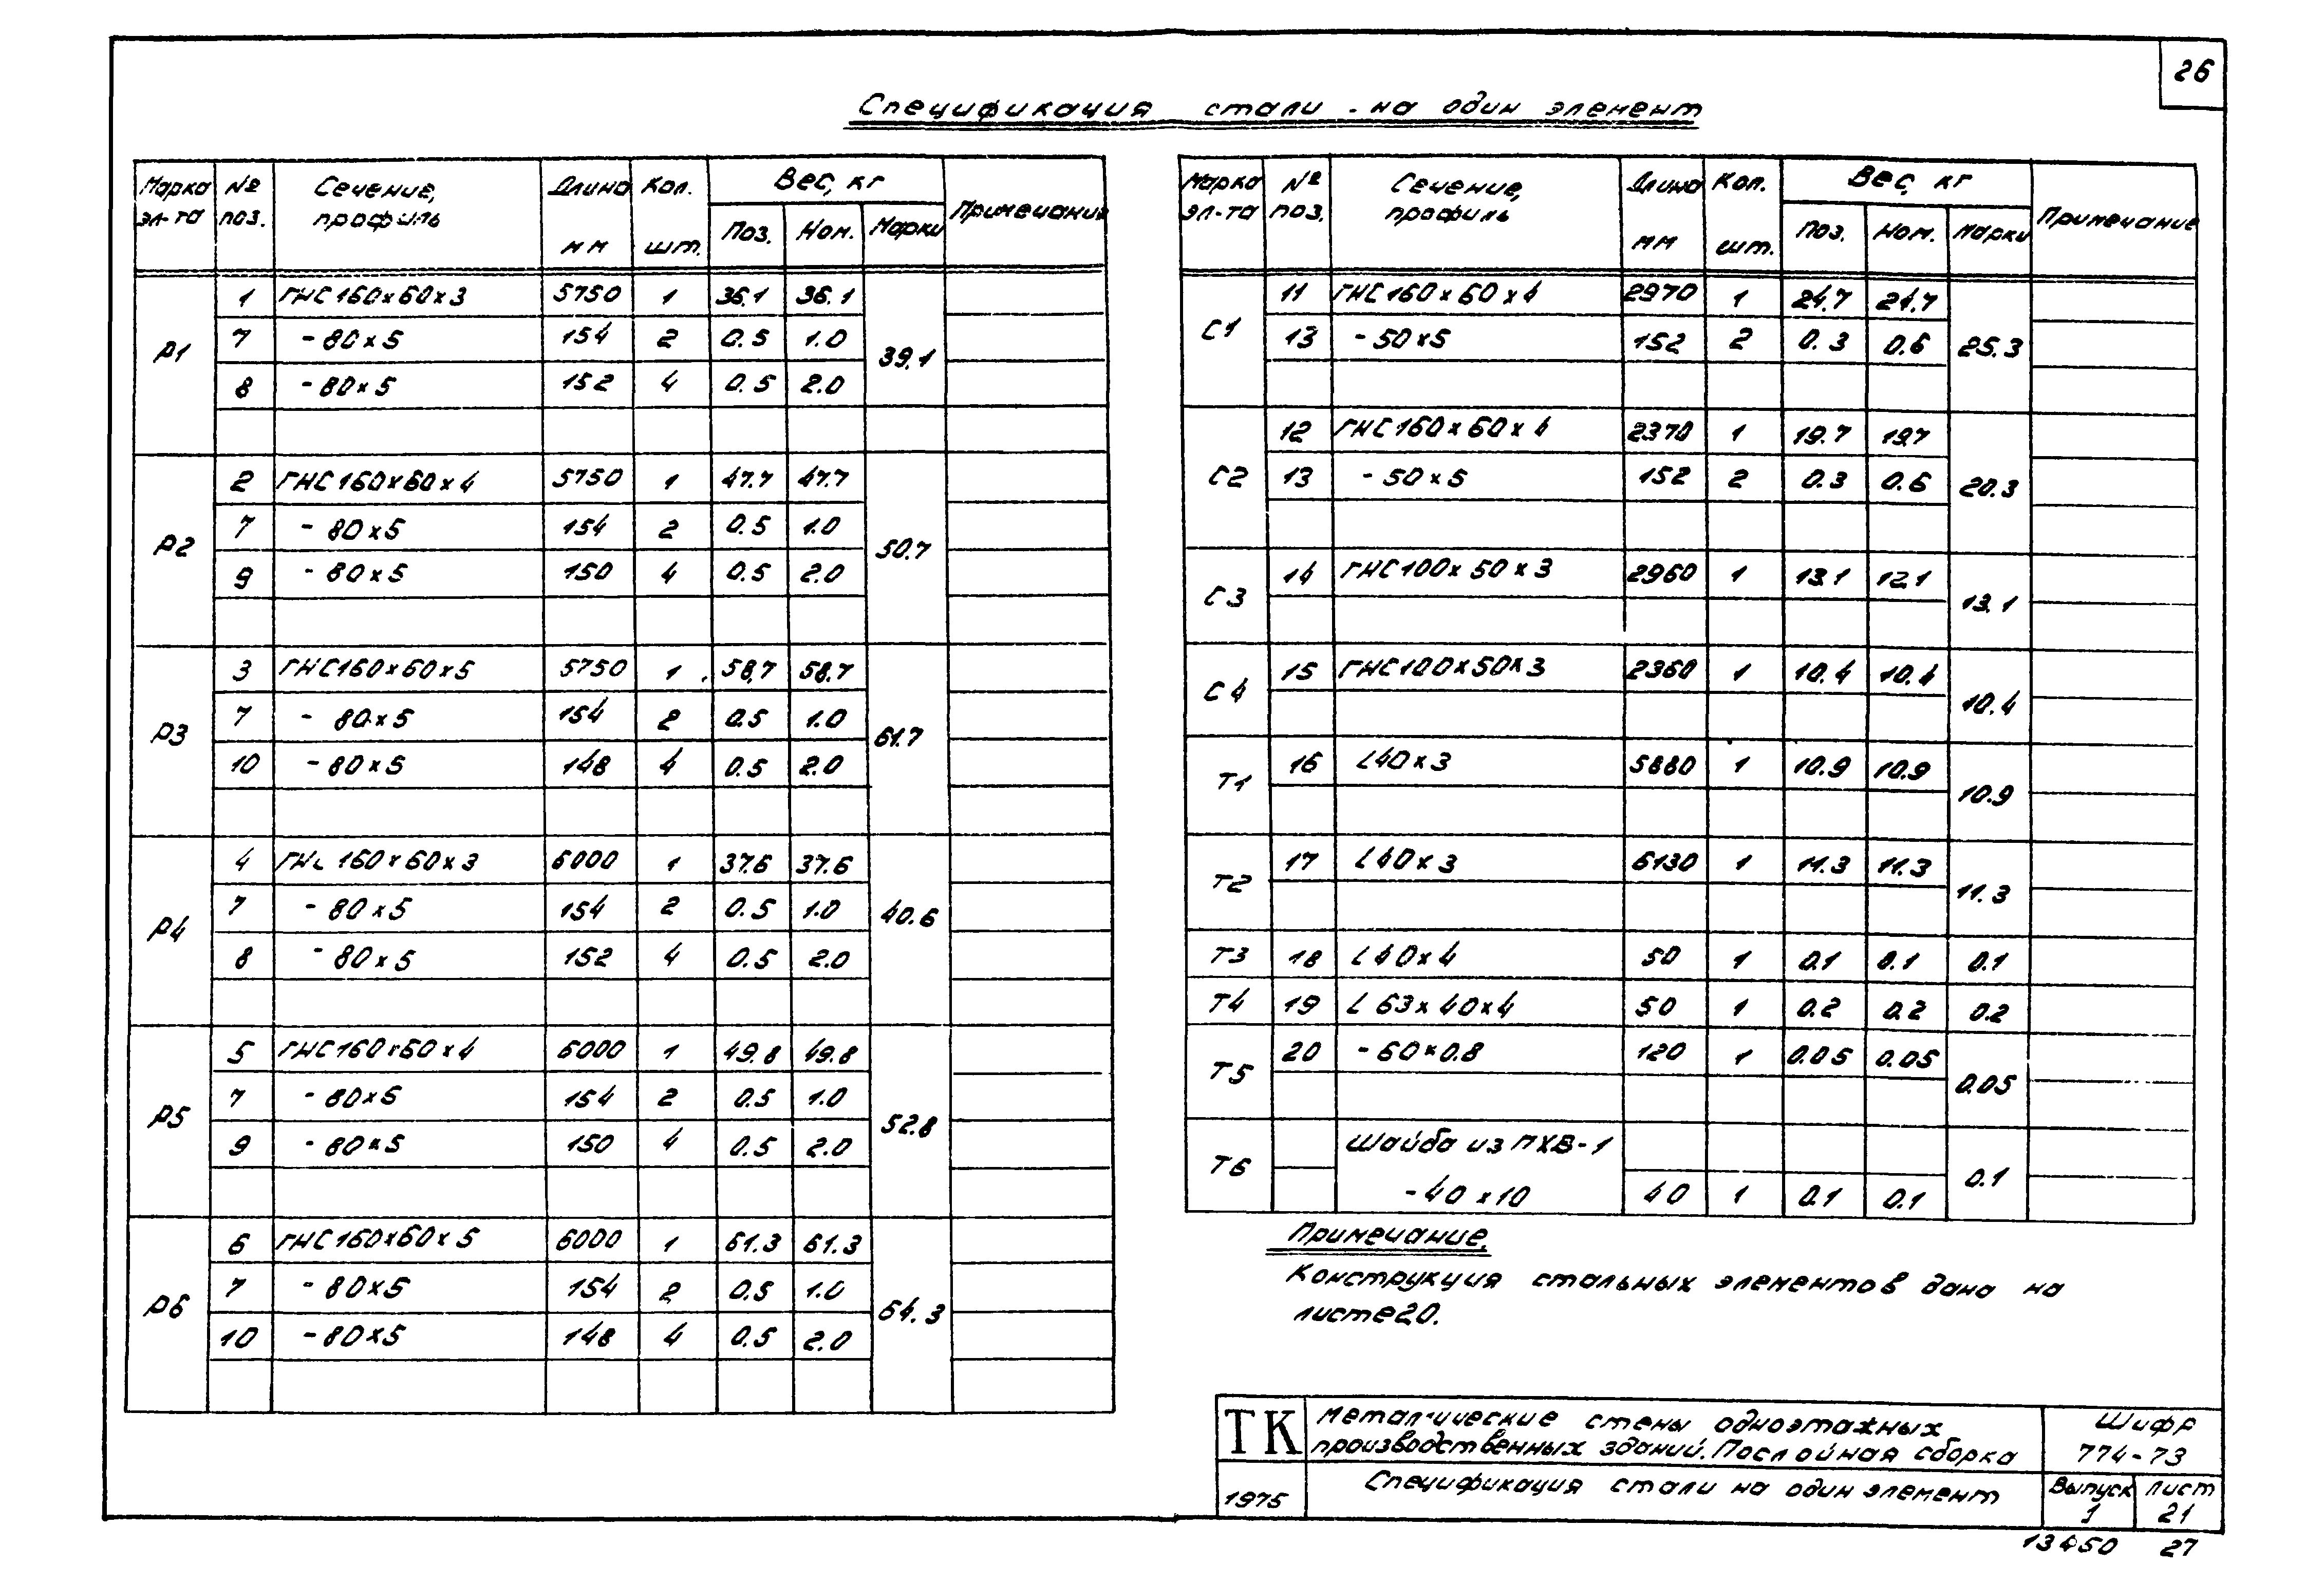 26
Спецификация стали на один элемент
Марка эл-та № поз. Сечение, профиль Длина мм Кол. шт. Вес, кг Примечание
Поз. Ном. Марки
Р1 1 ГНС160х60х3 5750 1 36.1 36.1 39.1
7 -80х5 154 2 0.5 1.0
8 -80х5 152 4 0.5 2.0
Р2 2 ГНС160х60х4 5750 1 47.7 47.7 50.7
7 -80х5 154 2 0.5 1.0
9 -80х5 150 4 0.5 2.0
Р3 3 ГНС160х60х5 5750 1 58,7 58.7 61.7
7 -80х5 154 2 0.5 1.0
10 -80х5 148 4 0.5 2.0
Р4 4 ГНС 160х60х3 6000 1 37.6 37.6 40.6
7 -80х5 154 2 0.5 1.0
8 -80х5 152 4 0.5 2.0
Р5 5 ГНС160х60х4 6000 1 49.8 49.8 52.8
7 -80х5 154 2 0.5 1.0
9 -80х5 150 4 0.5 2.0
Р6 6 ГНС160х60х5 6000 1 61.3 61.3 64.3
7 -80х5 154 2 0.5 1.0
10 -80х5 148 4 0.5 2.0
Марка эл-та № поз. Сечение, профиль Длина мм Кол. шт. Вес, кг Примечание
Поз. Ном. Марки
С1 11 ГНС160х60х4 2970 1 24.7 24.7 25.3
13 -50х5 152 2 0.3 0.6
С2 12 ГНС160х60х4 2370 1 19.7 19.7 20.3
13 -50х5 152 2 0.3 0.6
С3 14 ГНС100х50х3 2960 1 13.1 12.1 13.1
С4 15 ГНС100х50х3 2360 1 10.4 10.4 10.4
Т1 16 L40х3 5880 1 10.9 10.9 10.9
Т2 17 L40х3 6130 1 11.3 11.3 11.3
Т3 18 L40х4 50 1 0.1 0.1 0.1
Т4 19 L 63х40х4 50 1 0.2 0.2 0.2
Т5 20 -60х0.8 120 1 0.05 0.05 0.05
Т6 Шайба из ПХВ-1 0.1
-40х10 40 1 0.1 0.1
Примечание.
Конструкция стальных элементов дана на
листе 20.
ТК Металлические стены одноэтажных
производственных зданий. Послойная сборка
Шифр
774-73
1975 Спецификация стали на один элемент
Выпуск Лист
1 21
13450 27